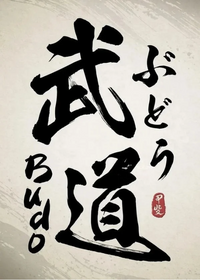 武道
ぶどう
Budo